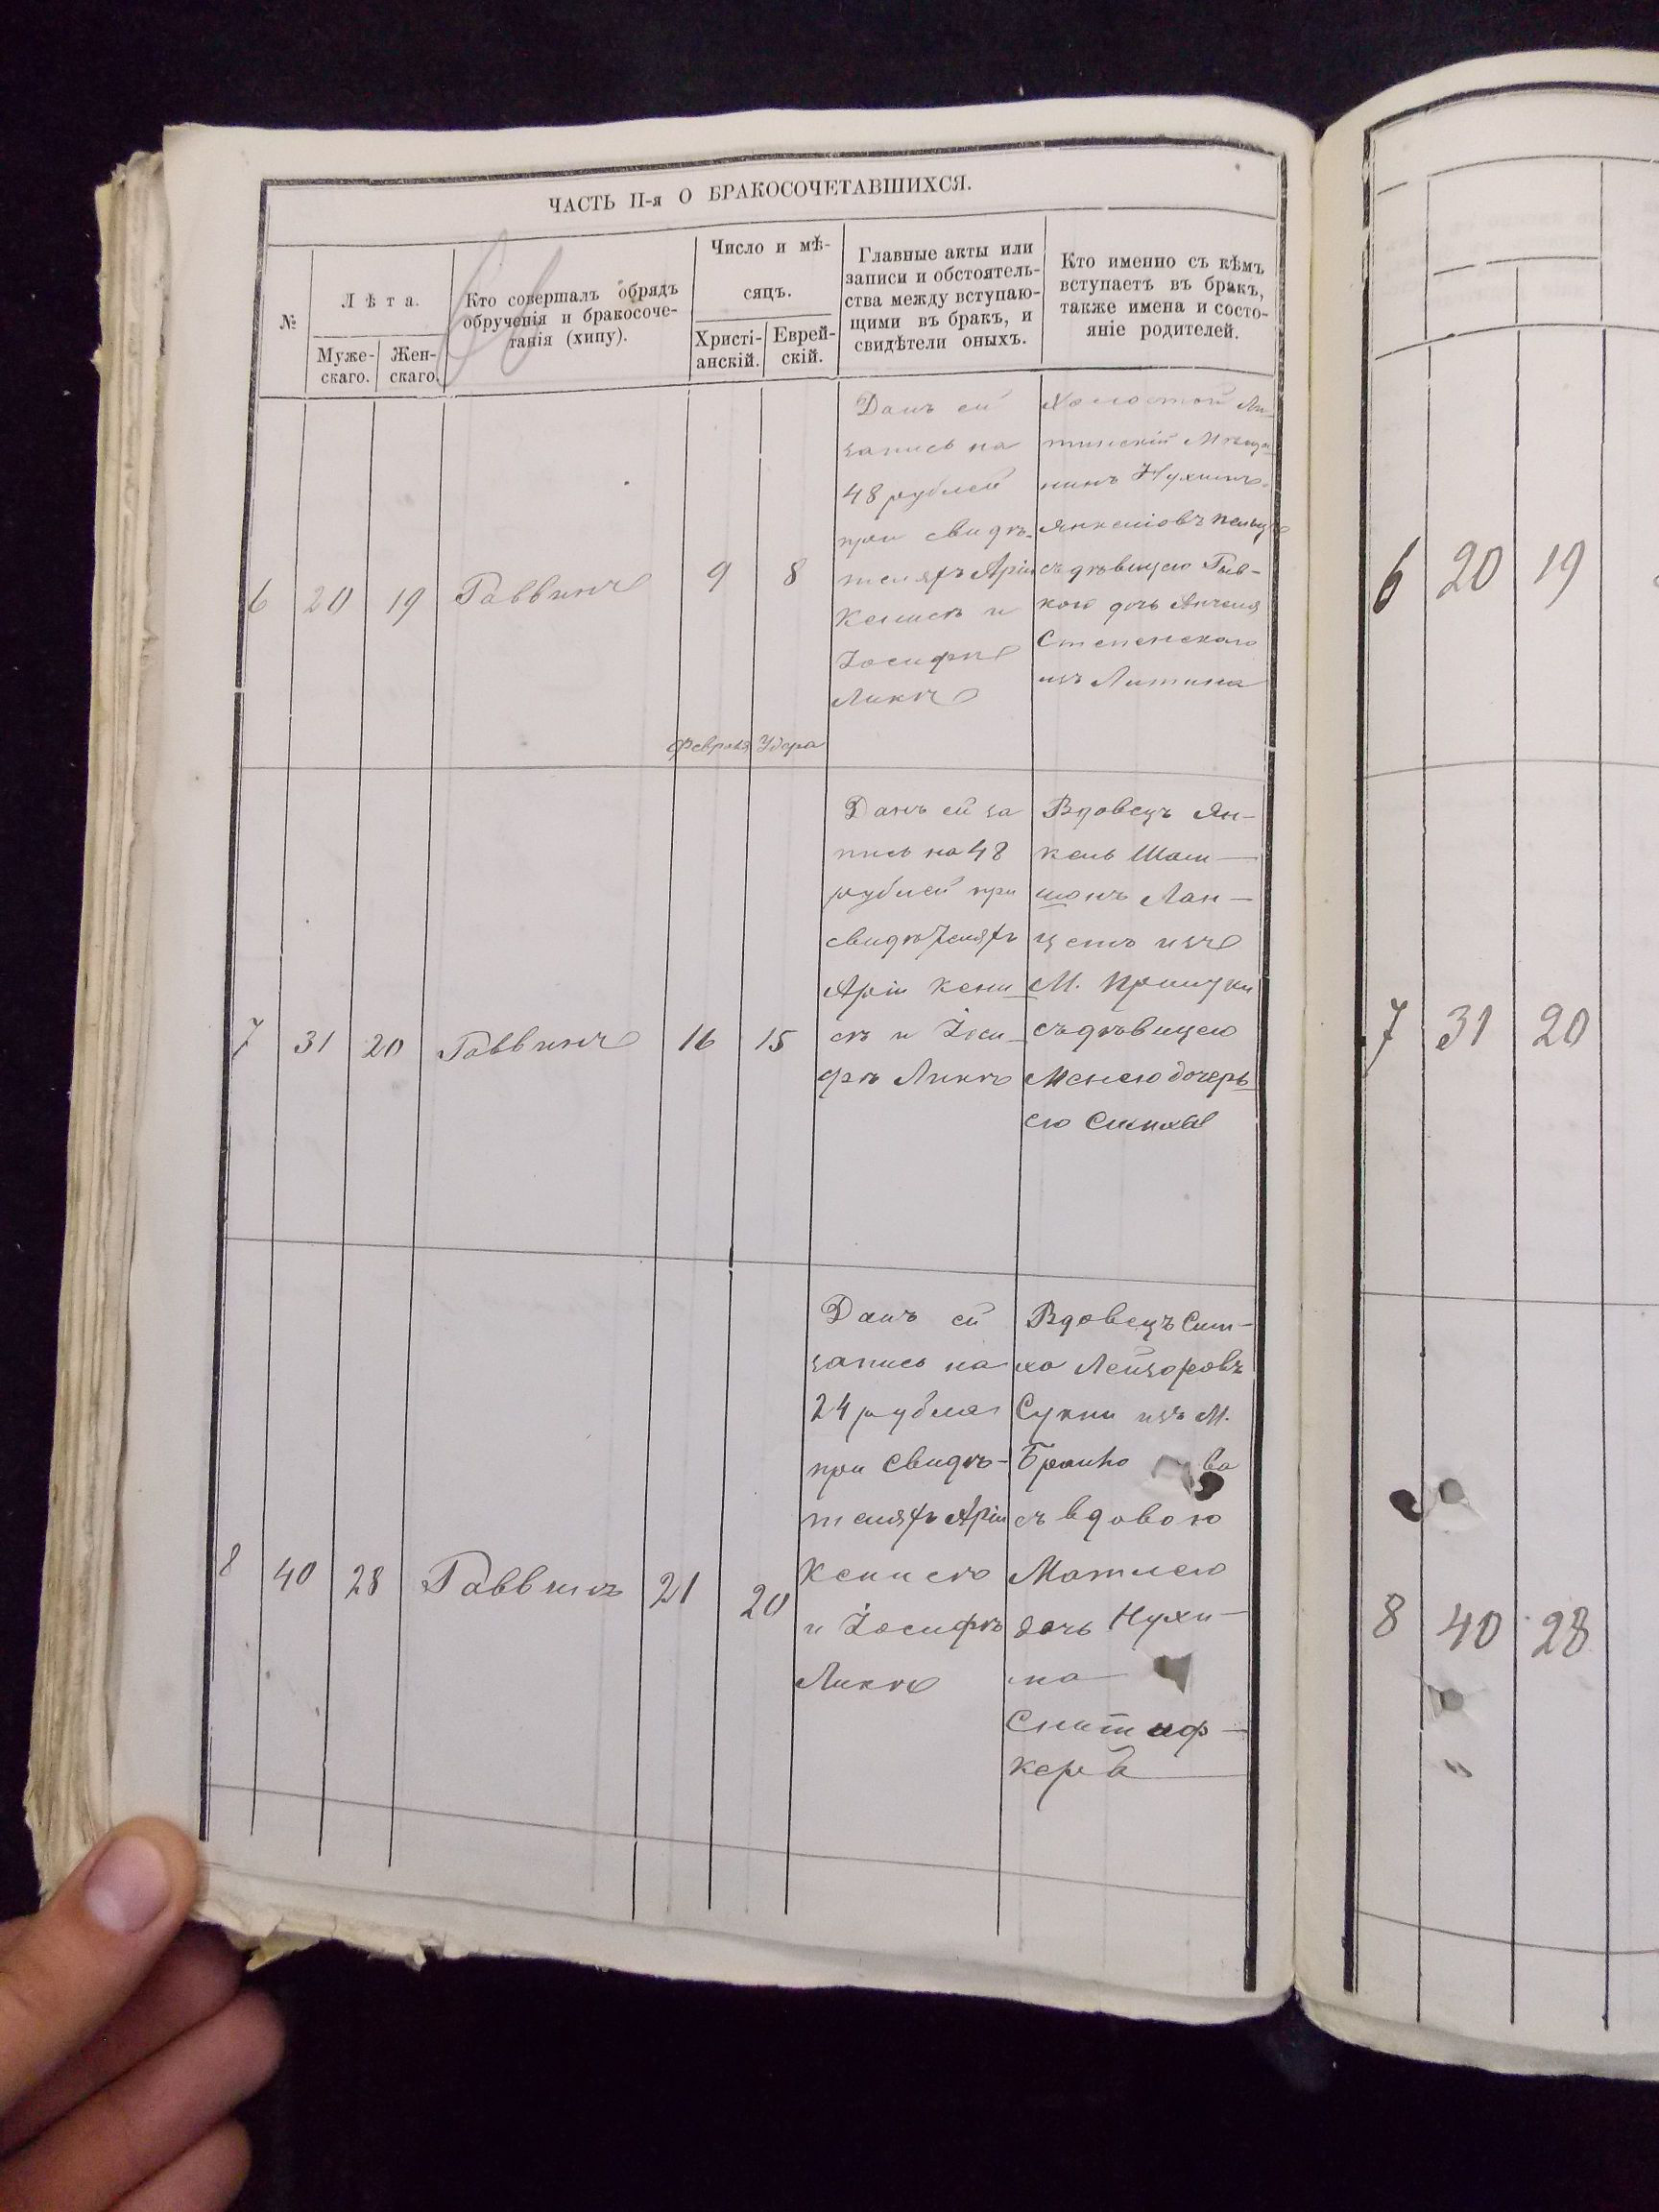 ЧАСТЬ II-я О БРАКОСОЧЕТАВШИХСЯ.
№
Лѣта.
Муже-
скаго.
Жен-
скаго.
Кто совершалъ обрядъ
обрученія и бракосоче-
танія (хипу).
Число и мѣ-
сяцъ.
Христі-
анскій.
Еврей-
скій.
Главные акты или
записи и обстоятель-
ства между вступаю-
щими въ бракъ, и
свидѣтели оныхъ.
Кто именно съ кѣмъ
вступаетъ въ бракъ,
также имена и состо-
яніе родителей.
6
20
19
Раввинъ
9
8
Февраля
Данъ ей
запись на
48 рублей
при свидѣ-
теляхъ Арiи
и
Іосифѣ
Холостой Ли-
тинскій Мѣща-
нинъ Нухимъ
Янкеліовъ
съ дѣвицею Рив-
кою дочь
изъ Литина
7
31
20
Раввинъ
16
15
Данъ ей за
пись на 48
рублей при
свидѣтеляхъ
Арiи
и Іоси-
фѣ
Вдовецъ Ян-
кель Шам-
шонъ Лан-
изъ
М.
съ дѣвицею
Менею дочерь
ею Симхи
8
40
28
Раввинъ
21
20
Данъ ей
запись на
24 рубля
при свидѣ-
теляхъ Арiи
и Іосифѣ
Вдовецъ Сим-
ха Лейзоровъ
изъ М.
съ вдовою
Матлею
дочь Нухи-
ма
6
20
19
7
31
20
8
40
28